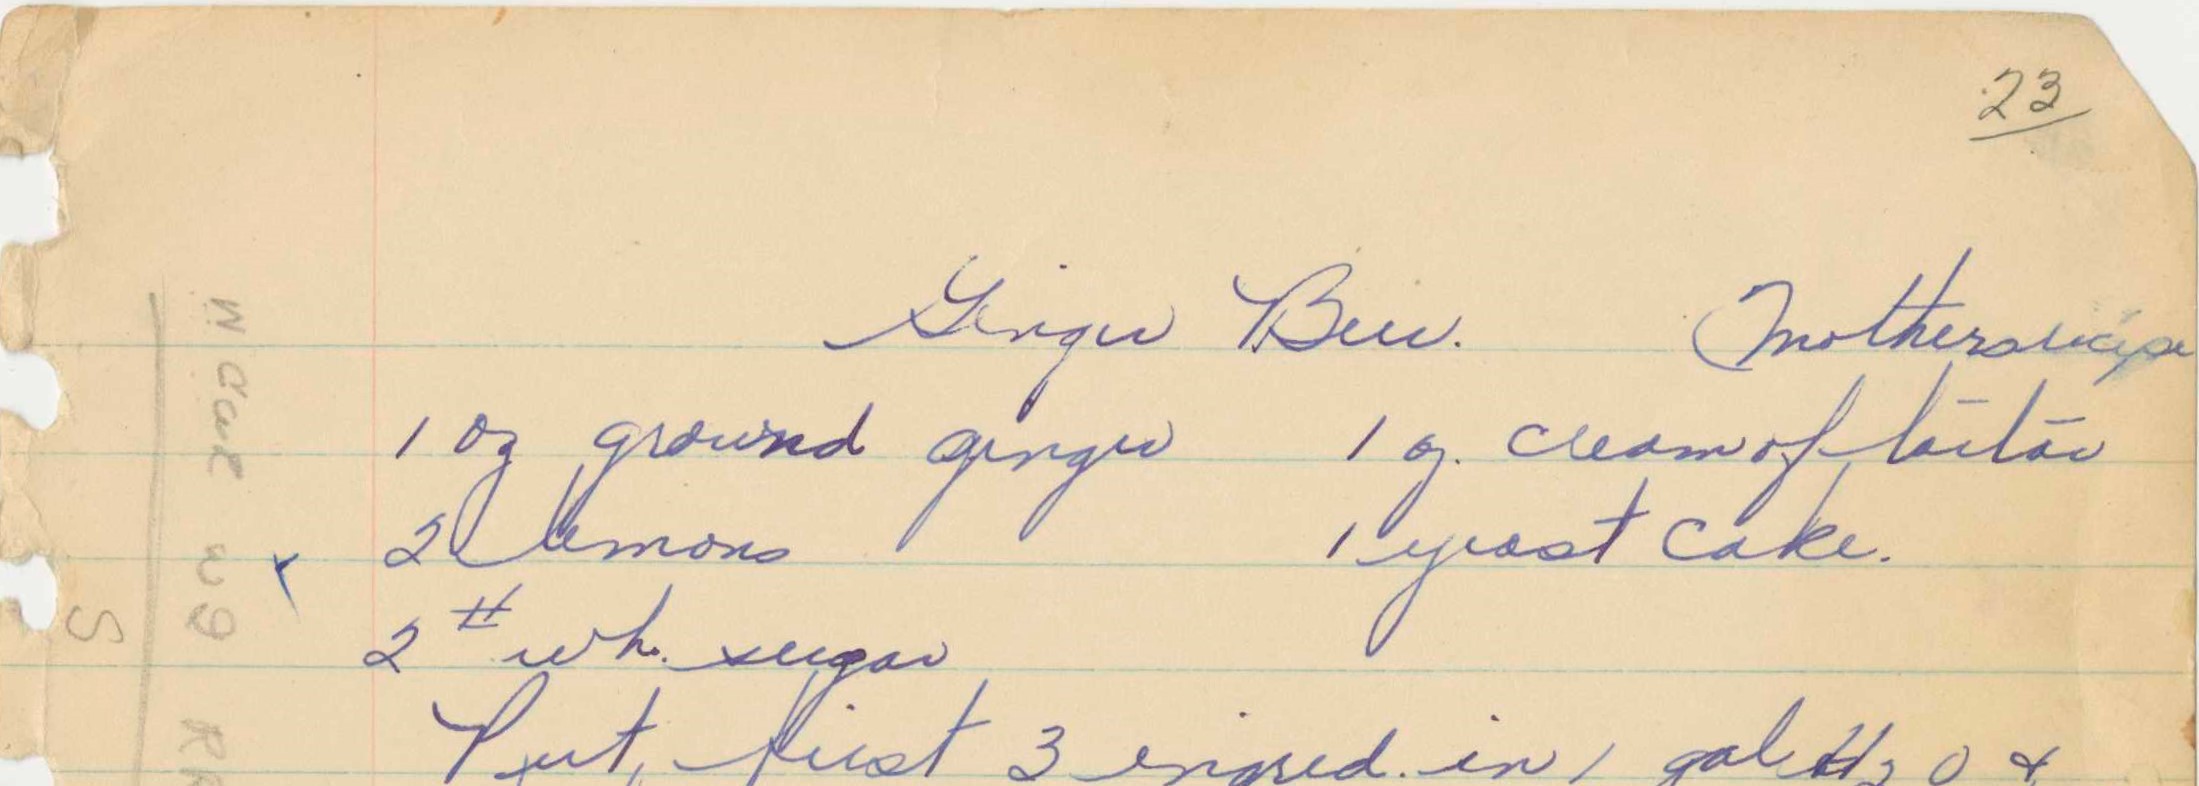 23
Ginger Beer. Mothers recipe
1 oz ground ginger 1 oz. cream of tartar
2 lemons 1 yeast cake.
2 # wh. sugar
Put, first 3 ingred. in 1 gal H2O &